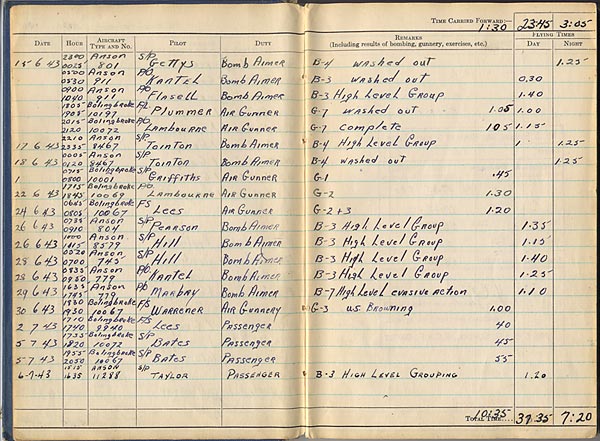 TIME CARRIED FORWARD:— 1:30 23:45 3:05
DATE HOUR AIRCRAFT TYPE AND NO. PILOT DUTY REMARKS (Including results of bombing, gunnery, exercises, etc.) FLYING TIMES DAY NIGHT
15 6 43 2300 0025 Anson 801 S/P Gettys Bomb Aimer B-4 washed out 1.25
0500 0530 Anson 911 P/O Kantel Bomb Aimer B-3 washed out 0.30
0900 1040 Anson 911 P/O Bomb Aimer B-3 High Level Group 1.40
1805 1905 Bolingbroke 10197 F/L Plummer Air Gunner G-7 washed out 1.05 1.00
2015 2120 Bolingbroke 10072 P/O Lambourne Air Gunner G-7 complete 105 1.15
17 6 43 2210 2335 Anson 8467 S/P Tointon Bomb Aimer B-4 High Level Group 1.25
18 6 43 0005 0120 Anson 8467 S/P Tointon Bomb Aimer B-4 washed out 1.25
0715 0800 Bolingbroke 10001 S/P Griffiths Air Gunner G-1 .45
22 6 43 1715 1845 Bolingbroke 10069 P/O Lambourne Air Gunner G-2 1.30
24 6 43 0645 0805 Bolingbroke 10067 F/S Lees Air Gunner G-2+3 1.20
26 6 43 0735 0910 Anson 804 S/P Pearson Bomb Aimer B-3 High Level Group 1.35
26 6 43 Anson 8579 S/P Hill Bomb Aimer B-3 High Level Group 1.15
28 6 43 0520 0700 Anson 745 S/P Hill Bomb Aimer B-3 High Level Group 1.40
28 6 43 0835 0950 Anson 779 P/O Kantel Bomb Aimer B-3 High Level Group 1.25
29 6 43 1635 1745 Anson 779 P/O Bomb Aimer B-7 High Level evasive action 1.10
30 6 43 1830 1930 Bolingbroke 10067 F/S Warrener Air Gunnery G-3 u.s. Browning 1.00
2 7 43 1710 1740 Bolingbroke 9940 F/S Lees Passenger 40
5 7 43 1735 1820 Bolingbroke 10072 S/P Bates Passenger 45
5-7 43 1955 2050 Bolingbroke 10067 S/P Bates Passenger 55
6-7-43 1515 1635 Anson 11288 S/P Taylor Passenger B-3 High Level Grouping 1.20
TOTAL TIME.... 10:35 37:35 7:20